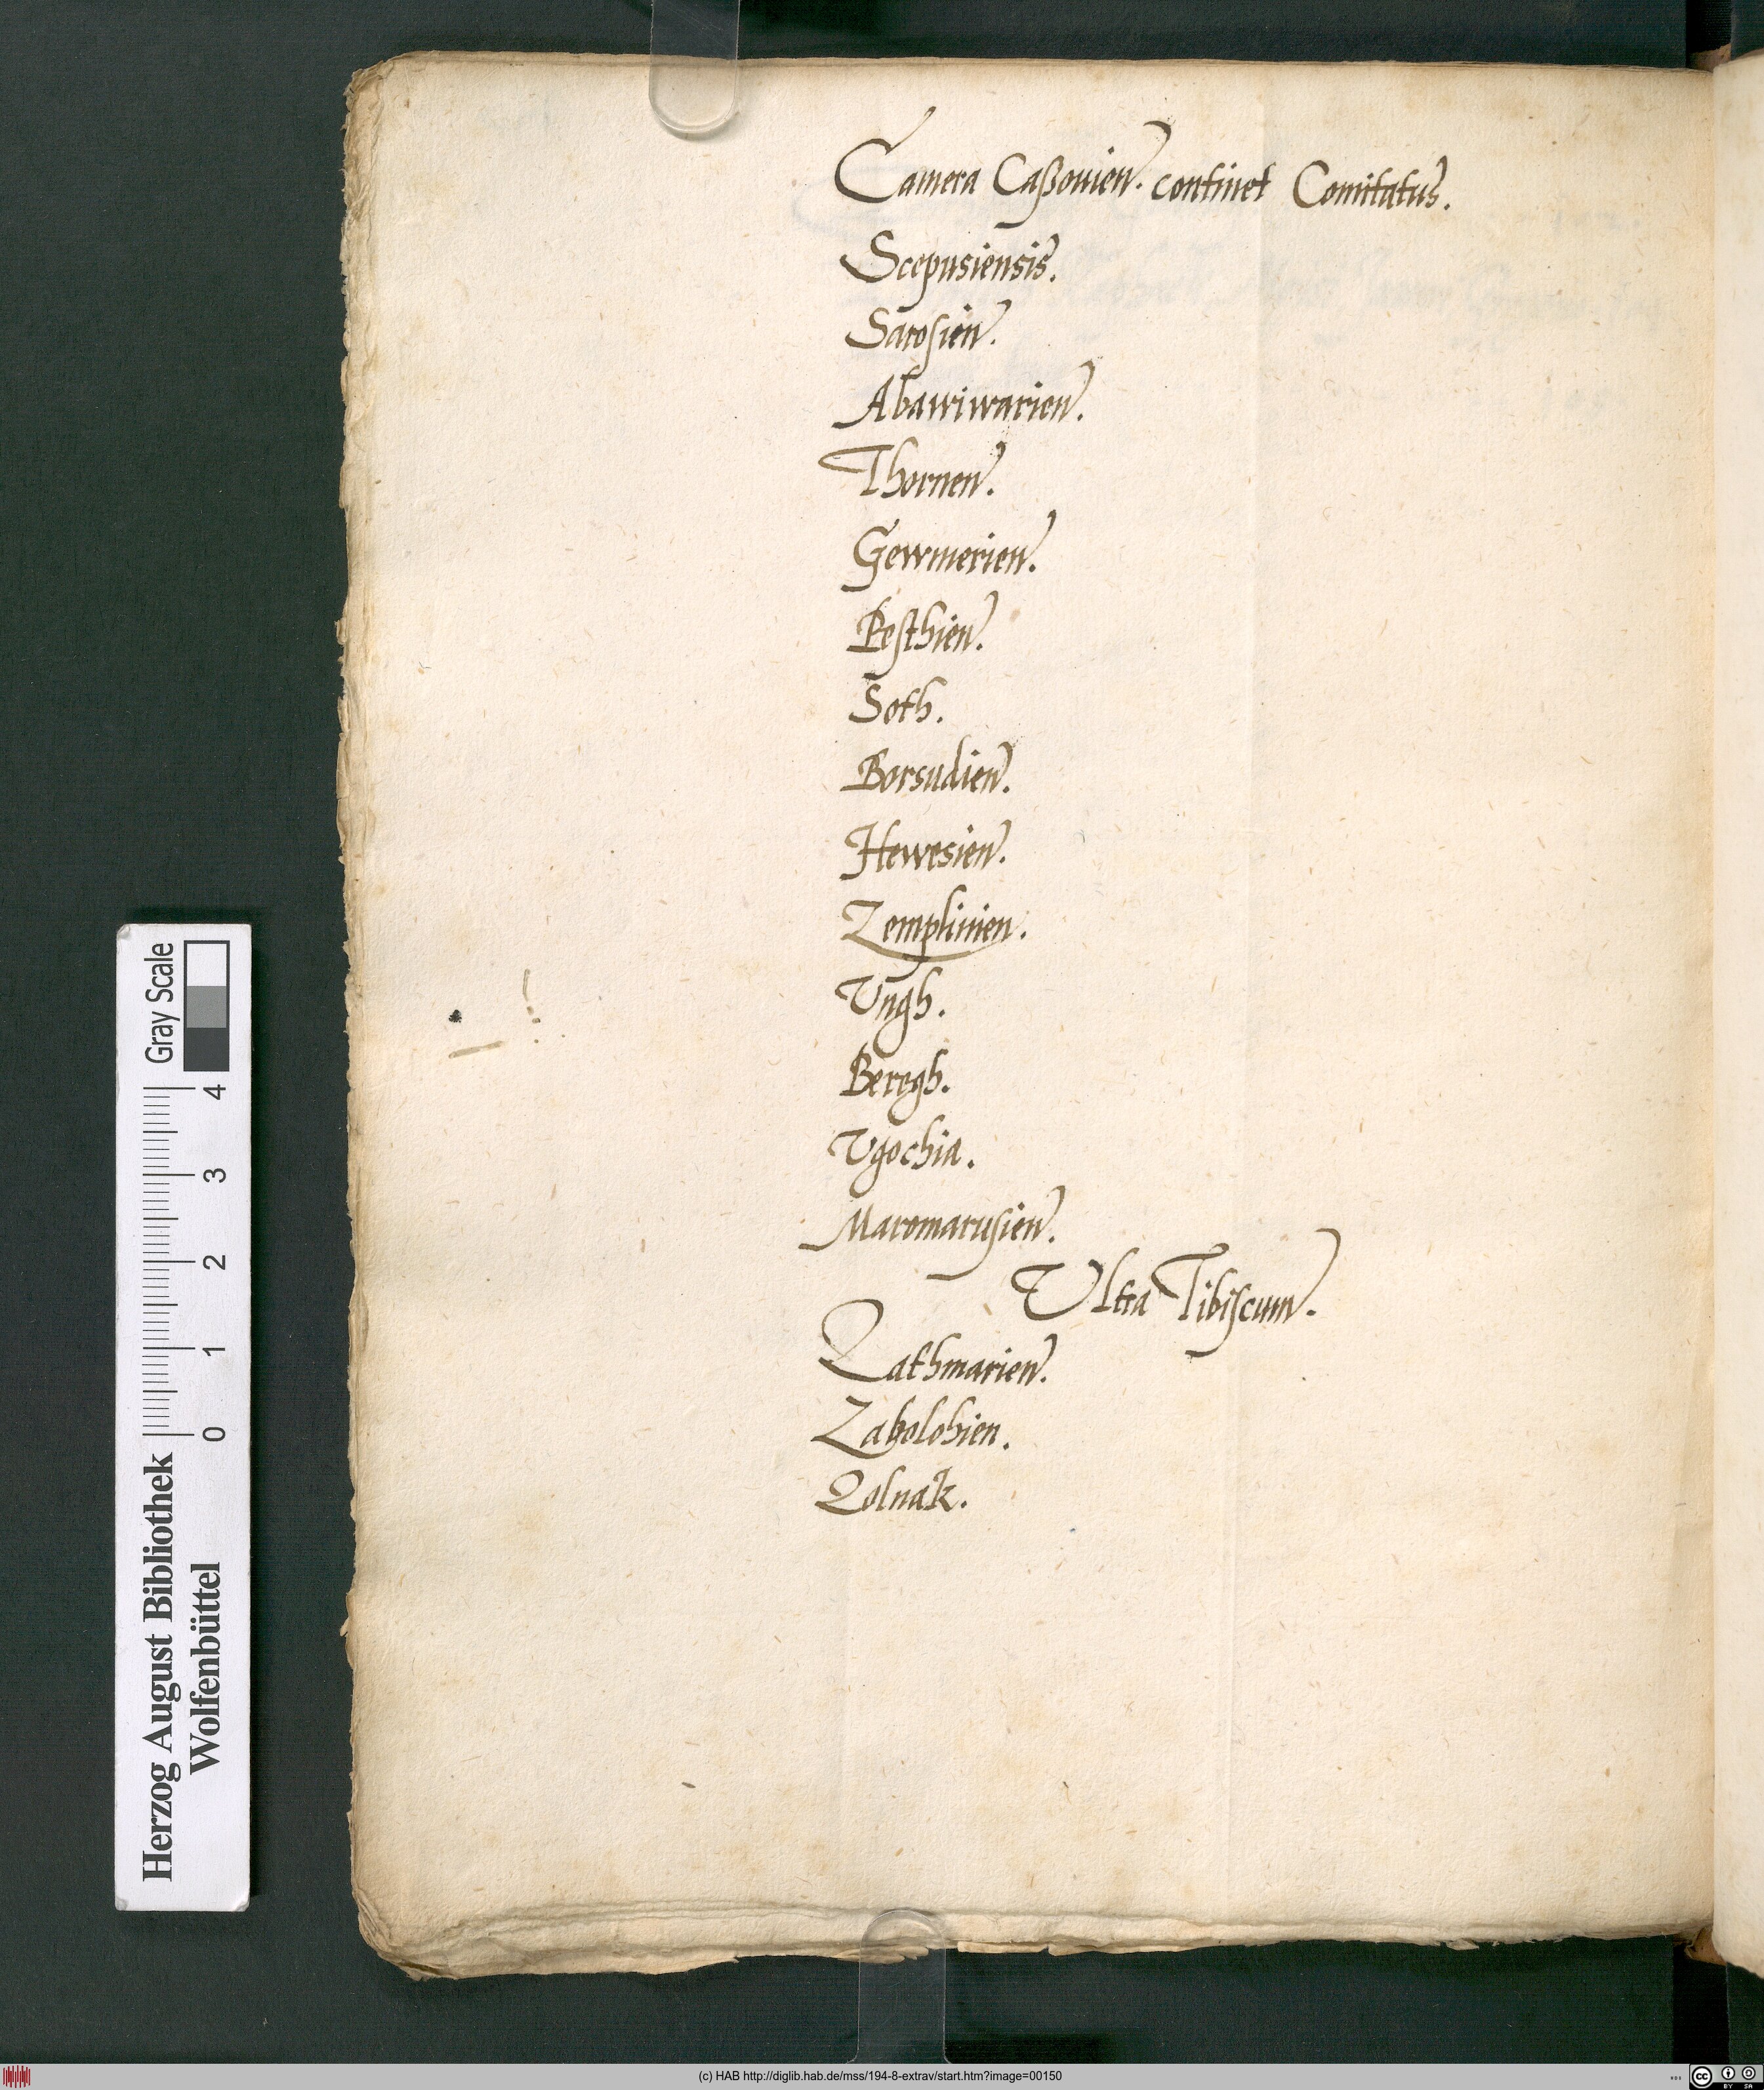 Camera Caßouien. continet Comitatus.
Scepusiensis.
Sarosien.
Abawiwarien.
Thornen.
Gewmerien.
Pesthien.
Soth.
Borsudien.
Hewesien.
Zemplinien.
Vngh.
Beregh.
Vgochia.
Maromarusien.
Vltra Tibiscum.
Zathmarien.
Zabolchien.
Zolnak.
Herzog August Bibliothek
Wolfenbüttel
0 1 2 3 4
Gray Scale
(c) HAB http://diglib.hab.de/mss/194-8-extrav/start.htm?image=00150
cc BY SA